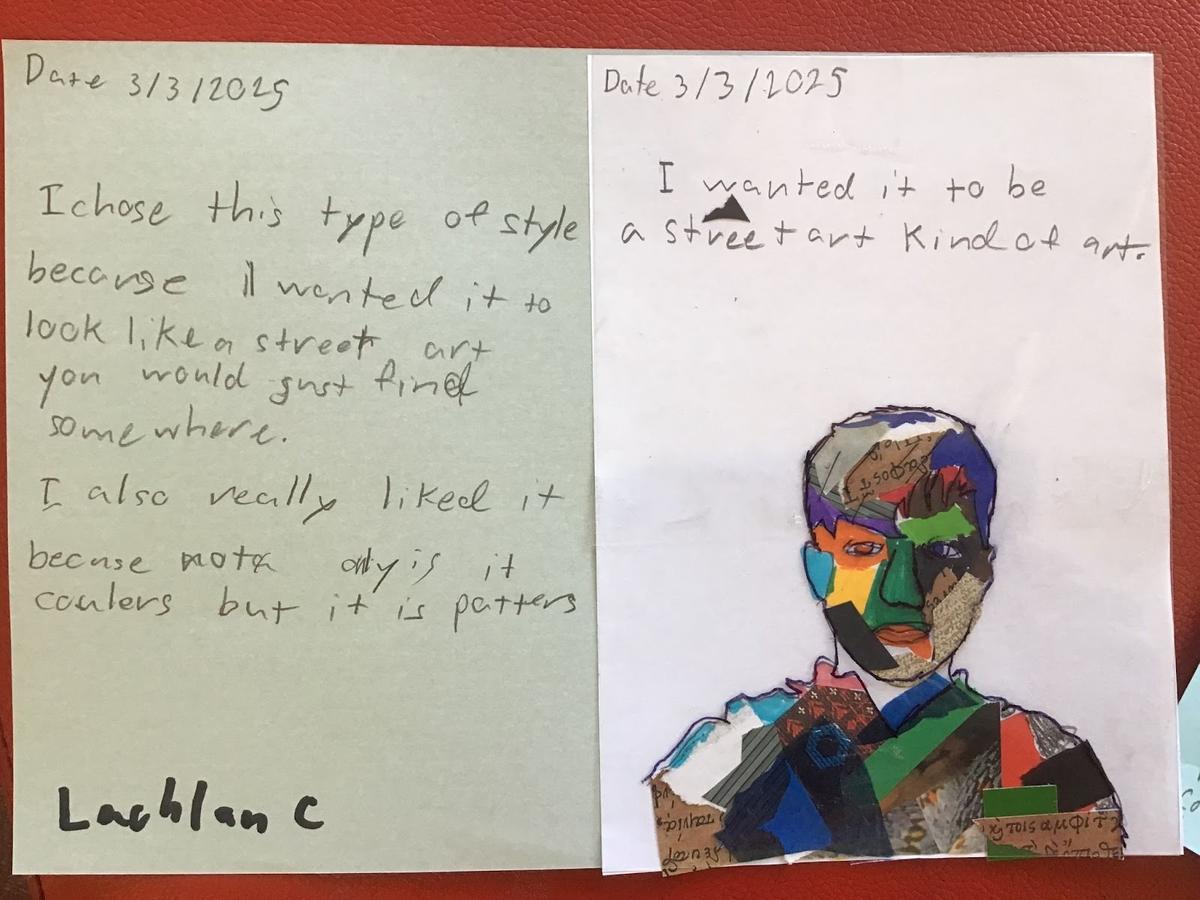 Date 3/3/2025
I chose this type of style
because I wanted it to
look like a street art
you would gust find
somewhere.
I also really liked it
becuse not only is it
coulers but it is patters
Lachlan C
Date 3/3/2025
I wanted it to be
a street art kind of art.